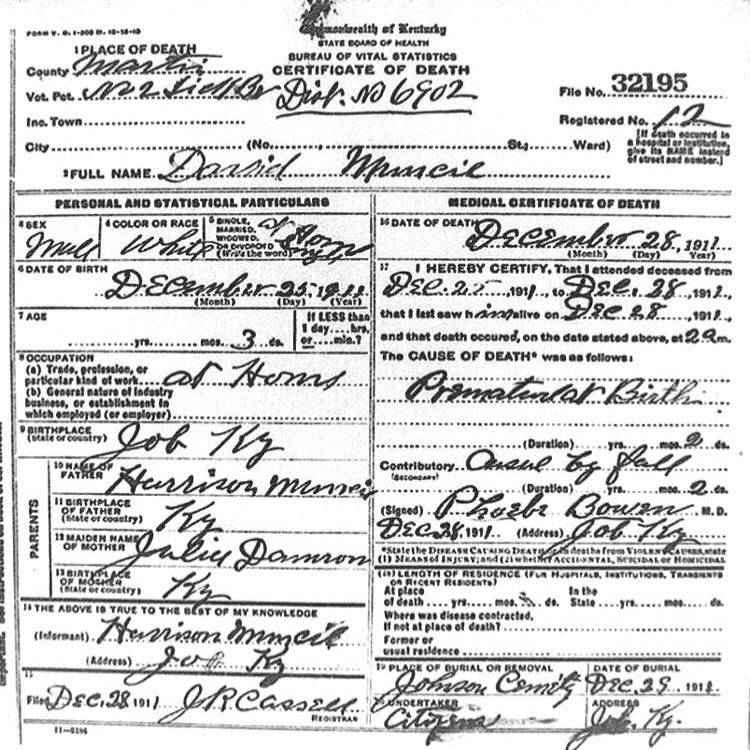 FORM V. S. 1-200 M. 10-18-10
Commonwealth of Kentucky
STATE BOARD OF HEALTH
BUREAU OF VITAL STATISTICS
CERTIFICATE OF DEATH
1 PLACE OF DEATH
County Martin
Vot. Pct. No 2 Dist. No 6902
File No. 32195
Inc. Town
Registered No. 12
City (No. St.; Ward)
[If death occurred in a hospital or institution, give its NAME instead of street and number.]
2 FULL NAME David Muncil
PERSONAL AND STATISTICAL PARTICULARS
4 SEX
Mall
4 COLOR OR RACE
White
5 SINGLE, MARRIED, WIDOWED, OR DIVORCED (Write the word)
6 DATE OF BIRTH
December 25, 1911
(Month) (Day) (Year)
7 AGE
yrs. mos. 3 ds.
If LESS than 1 day....hrs. or....min.?
8 OCCUPATION
(a) Trade, profession, or
particular kind of work at Home
(b) General nature of industry
business, or establishment in
which employed (or employer)
9 BIRTHPLACE
(State or country) Job Ky
PARENTS
10 NAME OF
FATHER Harrison Muncil
11 BIRTHPLACE
OF FATHER
(State or country) Ky
12 MAIDEN NAME
OF MOTHER Julie Damron
13 BIRTHPLACE
OF MOTHER
(State or country) Ky
14 THE ABOVE IS TRUE TO THE BEST OF MY KNOWLEDGE
(Informant) Harrison Muncil
(Address) Job Ky
15
Filed Dec. 28 1911 J R Cassell
REGISTRAR
11-5184
MEDICAL CERTIFICATE OF DEATH
16 DATE OF DEATH
December 28, 1911
(Month) (Day) (Year)
17 I HEREBY CERTIFY, That I attended deceased from
Dec. 25, 1911, to Dec. 28 1911,
that I last saw him alive on Dec 28 1911,
and that death occured, on the date stated above, at 2 a m.
The CAUSE OF DEATH* was as follows:
Prematur at Birth
(Duration) yrs. mos. 2 ds.
Contributory Causd by fall
(SECONDARY)
(Duration) yrs. mos. 2 ds.
(Signed) Phoebe Bowen M. D.
Dec 28, 1911 (Address) Job Ky
*State the DISEASE CAUSING DEATH, or in deaths from VIOLENT CAUSES, state
(1) MEANS OF INJURY; and (2) whether ACCIDENTAL, SUICIDAL or HOMICIDAL
(18) LENGTH OF RESIDENCE (FOR HOSPITALS, INSTITUTIONS, TRANSIENTS
OR RECENT RESIDENTS)
At place of death yrs. mos. ds. In the State yrs. mos. ds.
Where was disease contracted,
if not at place of death?
Former or
usual residence
19 PLACE OF BURIAL OR REMOVAL
Johnson Cemity
DATE OF BURIAL
Dec 29 1911
UNDERTAKER
Citizens
ADDRESS
Job, Ky.